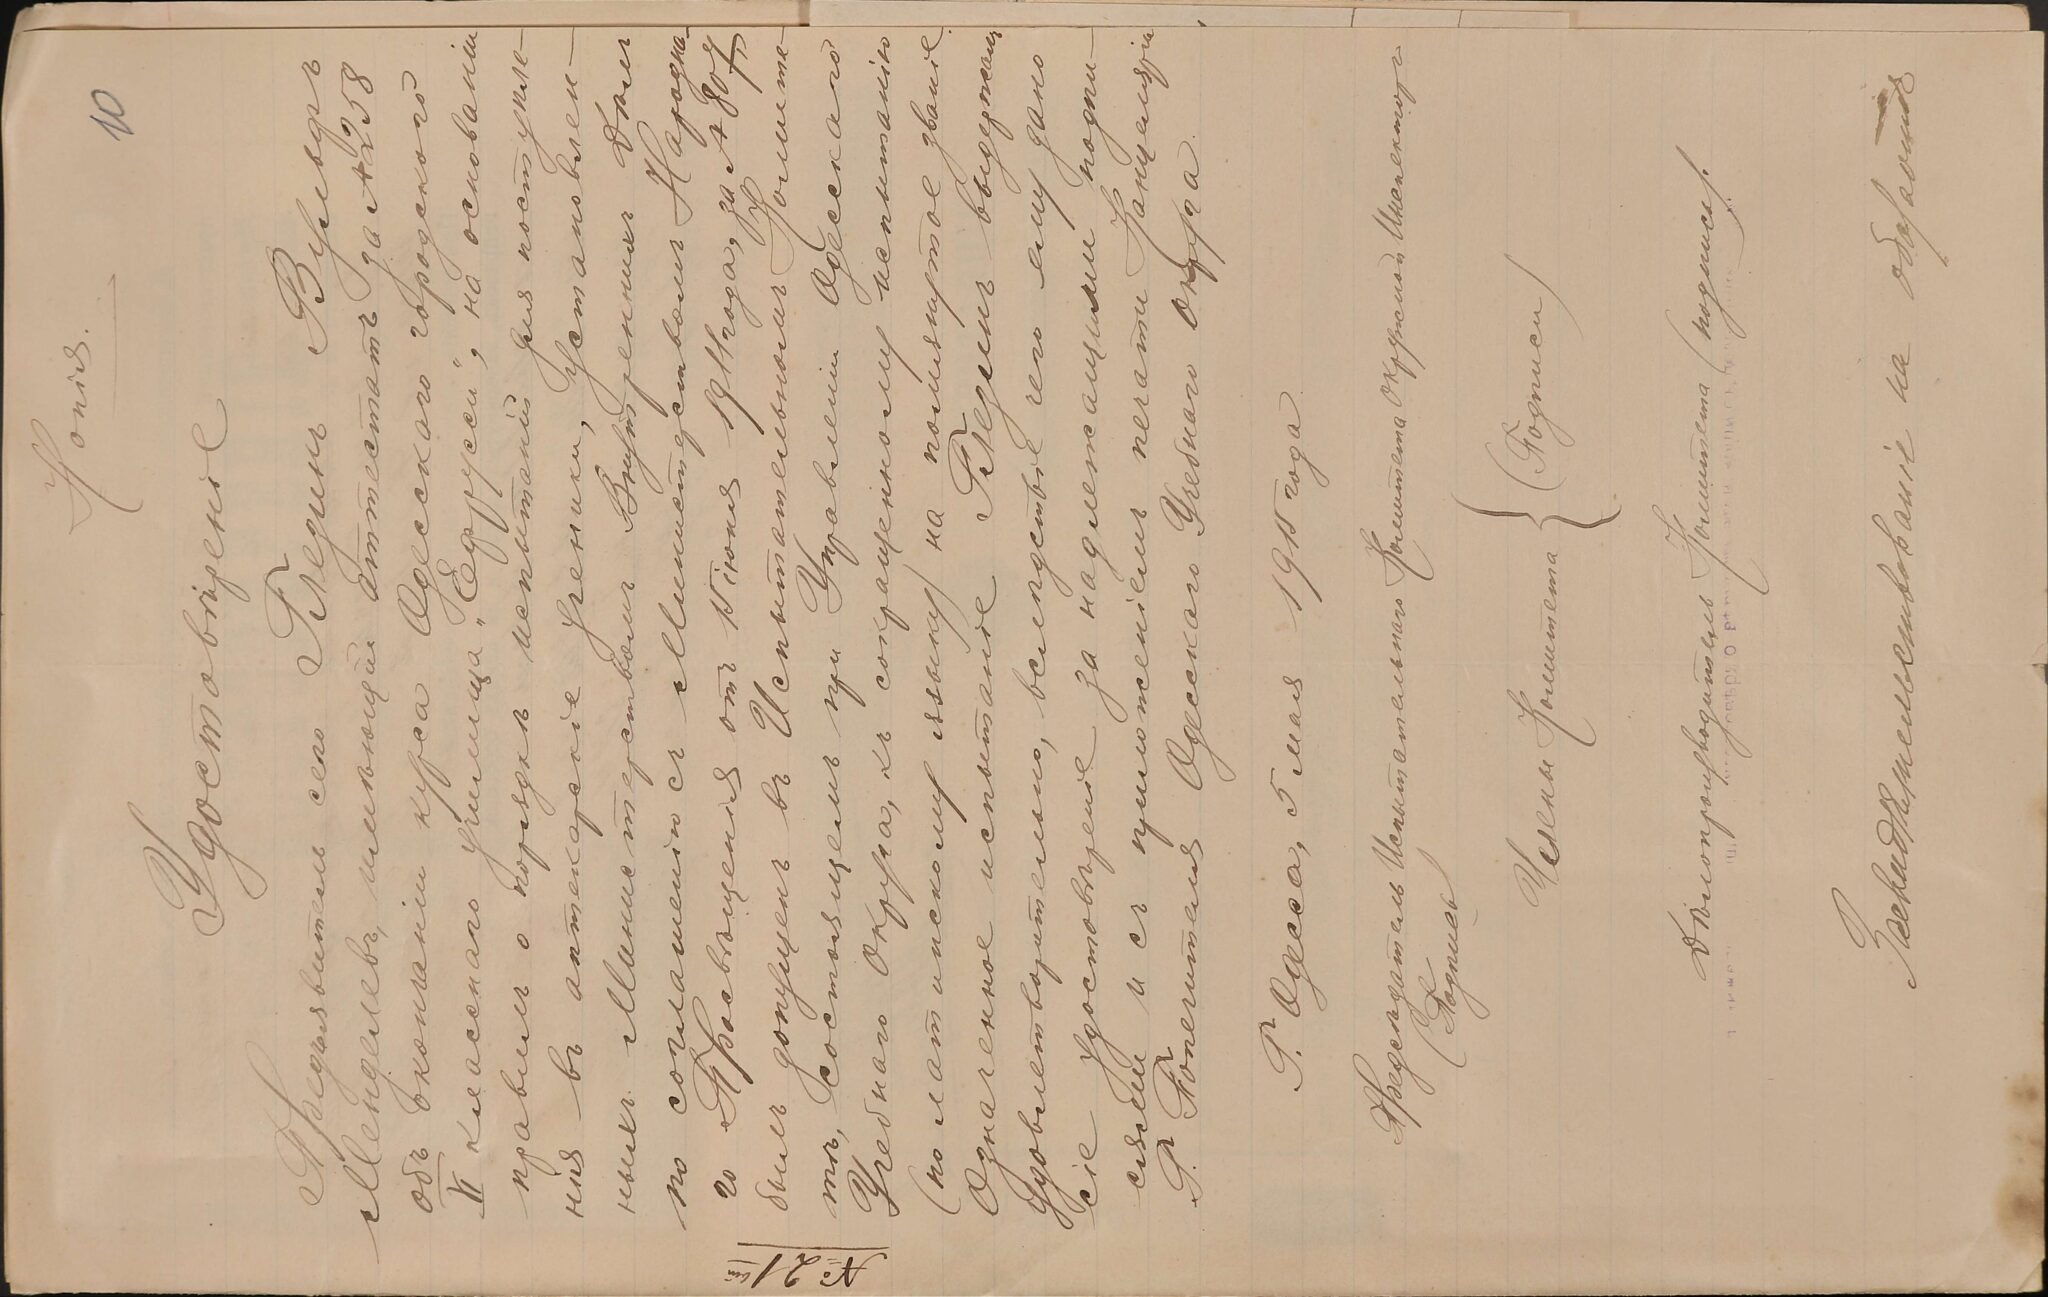 10
Копія.
Удостовѣреніе
Предъявитель сего Гледикъ Вульфъ
Менделевъ, имѣющій аттестатъ за № 258
объ окончаніи курса Одесскаго городского
VI класснаго училища „Ефрусси", на основаніи
правилъ о порядкѣ испытаній для поступле-
нія въ аптекарскіе ученики, установлен-
ныхъ Министерствомъ Внутреннихъ Дѣлъ
по соглашенію съ Министерствомъ Народна-
го Просвѣщенія отъ 15 іюня 1911 года, за № 807,
былъ допущенъ въ Испытательномъ Комите-
тѣ, состоящемъ при Управленіи Одесскаго
Учебнаго Округа, къ сокращенному испытанію
(по латинскому языку) на помянутое званіе.
Означенное испытаніе Гледикъ выдержалъ
удовлетворительно, вслѣдствіе чего ему дано
сіе удостовѣреніе за надлежащими подпи-
сями и съ приложеніемъ печати Канцеляріи
Г. Попечителя Одесскаго Учебнаго Округа.
Г. Одесса, 5 мая 1915 года
Предсѣдатель Испытательнаго Комитета Окружной Инспекторъ
(Подпись)
Члены Комитета { (Подписи)
Дѣлопроизводитель Комитета (подпись).
Засвидѣтельствованіе на оборотѣ
№ 21